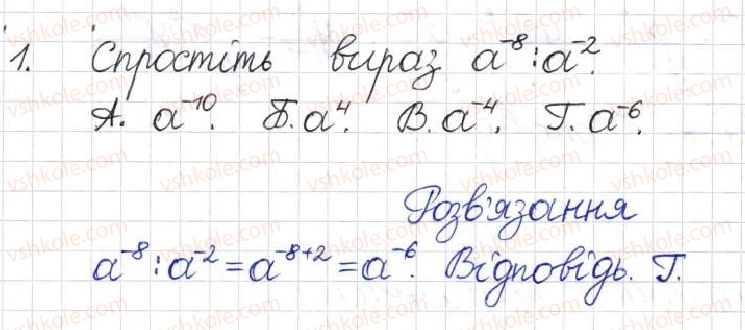 1. Спростіть вираз a⁻⁸:a⁻².
А. a⁻¹⁰. Б. a⁴. В. a⁻⁴. Г. a⁻⁶.
Розв'язання
a⁻⁸:a⁻²=a⁻⁸⁺²=a⁻⁶. Відповідь. Г.